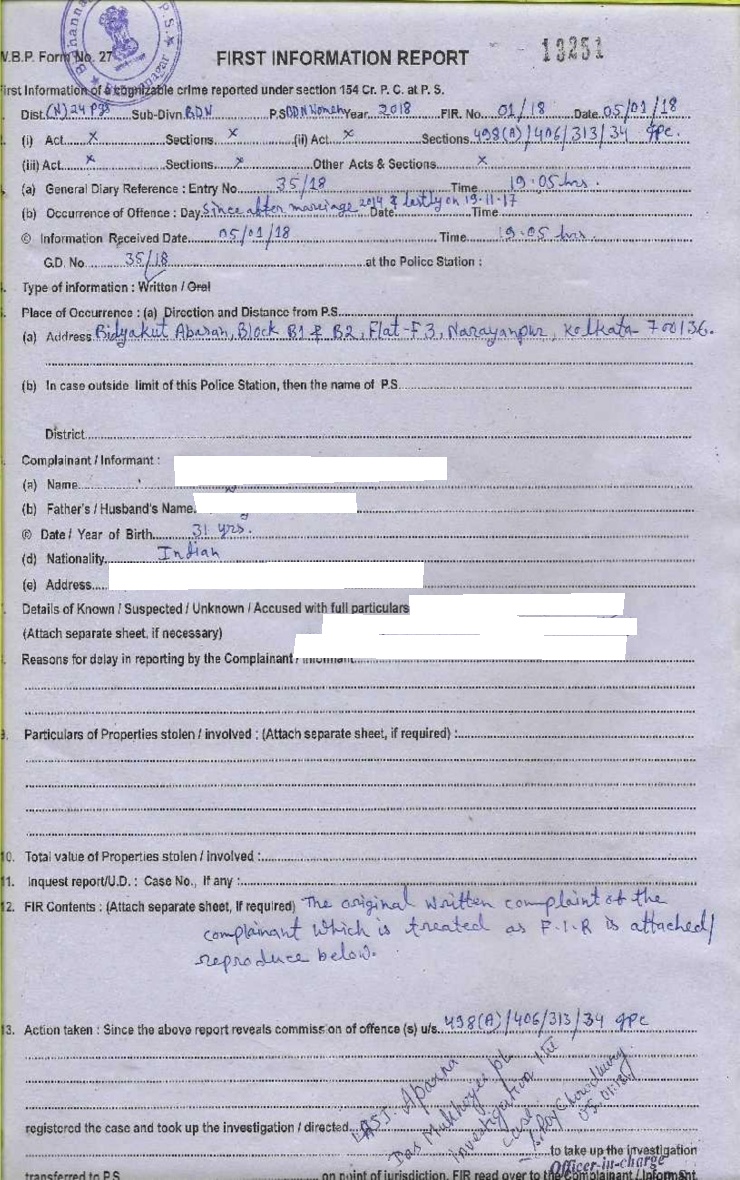 W.B.P. Form No. 27
FIRST INFORMATION REPORT
13251
First Information of a cognizable crime reported under section 154 Cr. P. C. at P. S.
Dist. (N) 24 Pgs Sub-Divn. BDN P.S BDN Women Year 2018 FIR. No. 01/18 Date 05/01/18
(i) Act x Sections x (ii) Act x Sections 498(A)/406/313/34 IPC.
(iii) Act x Sections x Other Acts & Sections x
(a) General Diary Reference : Entry No. 35/18 Time 19.05 hrs.
(b) Occurrence of Offence : Day Since after marriage 2014 & lastly on 19-11-17 Date Time
© Information Received Date 05/01/18 Time 19.05 hrs.
G.D. No. 35/18 at the Police Station :
Type of information : Written / Oral
Place of Occurrence : (a) Direction and Distance from P.S.
(a) Address Bidyakut Abasan, Block B1 & B2, Flat-F3, Narayanpur, Kolkata 700136.
(b) In case outside limit of this Police Station, then the name of P.S.
District
Complainant / Informant :
(a) Name
(b) Father's / Husband's Name
© Date / Year of Birth 31 yrs.
(d) Nationality Indian
(e) Address
Details of Known / Suspected / Unknown / Accused with full particulars
(Attach separate sheet, if necessary)
Reasons for delay in reporting by the Complainant / Informant
9. Particulars of Properties stolen / involved : (Attach separate sheet, if required) :
10. Total value of Properties stolen / involved :
11. Inquest report/U.D. : Case No., If any :
12. FIR Contents : (Attach separate sheet, if required) The original written complaint of the
complainant which is treated as F.I.R is attached/
reproduce below.
13. Action taken : Since the above report reveals commission of offence (s) u/s. 498(A)/406/313/34 IPC
registered the case and took up the investigation / directed ASI Aparna
Das Mukherjee
Investigation
case
05.01.18
to take up the investigation
Officer-in-charge
transferred to P.S. on point of jurisdiction. FIR read over to the Complainant / Informant